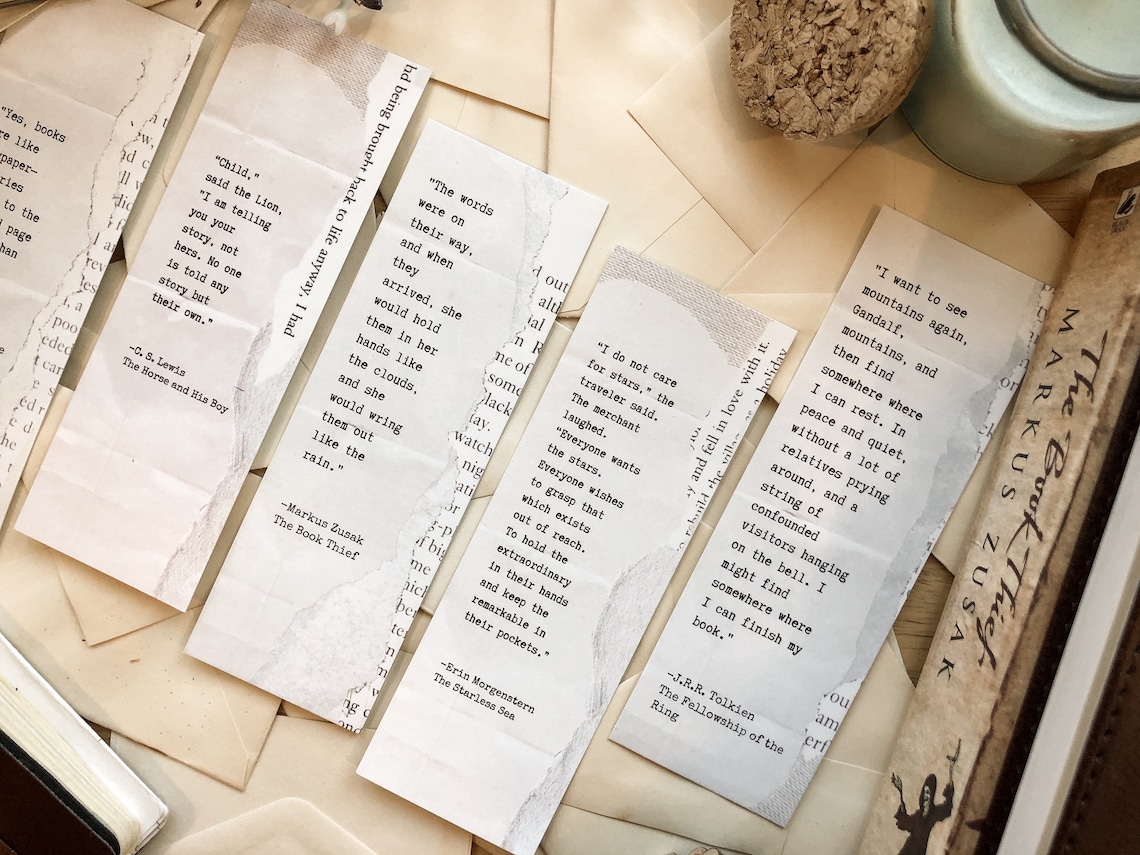 "Yes, books
like
paper—
to the
page
"Child,"
said the Lion,
"I am telling
you your
story, not
hers. No one
is told any
story but
their own."
-C. S. Lewis
The Horse and His Boy
being brought back to life anyway, I had
"The words
were on
their way,
and when
they
arrived, she
would hold
them in her
hands like
the clouds,
and she
would wring
them out
like the
rain."
-Markus Zusak
The Book Thief
out
me of
some
watch
"I do not care
for stars," the
traveler said.
The merchant
laughed.
"Everyone wants
the stars.
Everyone wishes
to grasp that
which exists
out of reach.
To hold the
extraordinary
in their hands
and keep the
remarkable in
their pockets."
-Erin Morgenstern
The Starless Sea
and fell in love with it.
holiday
"I want to see
mountains again,
Gandalf,
mountains, and
then find
somewhere where
I can rest. In
peace and quiet,
without a lot of
relatives prying
around, and a
string of
confounded
visitors hanging
on the bell. I
might find
somewhere where
I can finish my
book."
-J.R.R. Tolkien
The Fellowship of the
Ring
The Book Thief
MARKUS ZUSAK